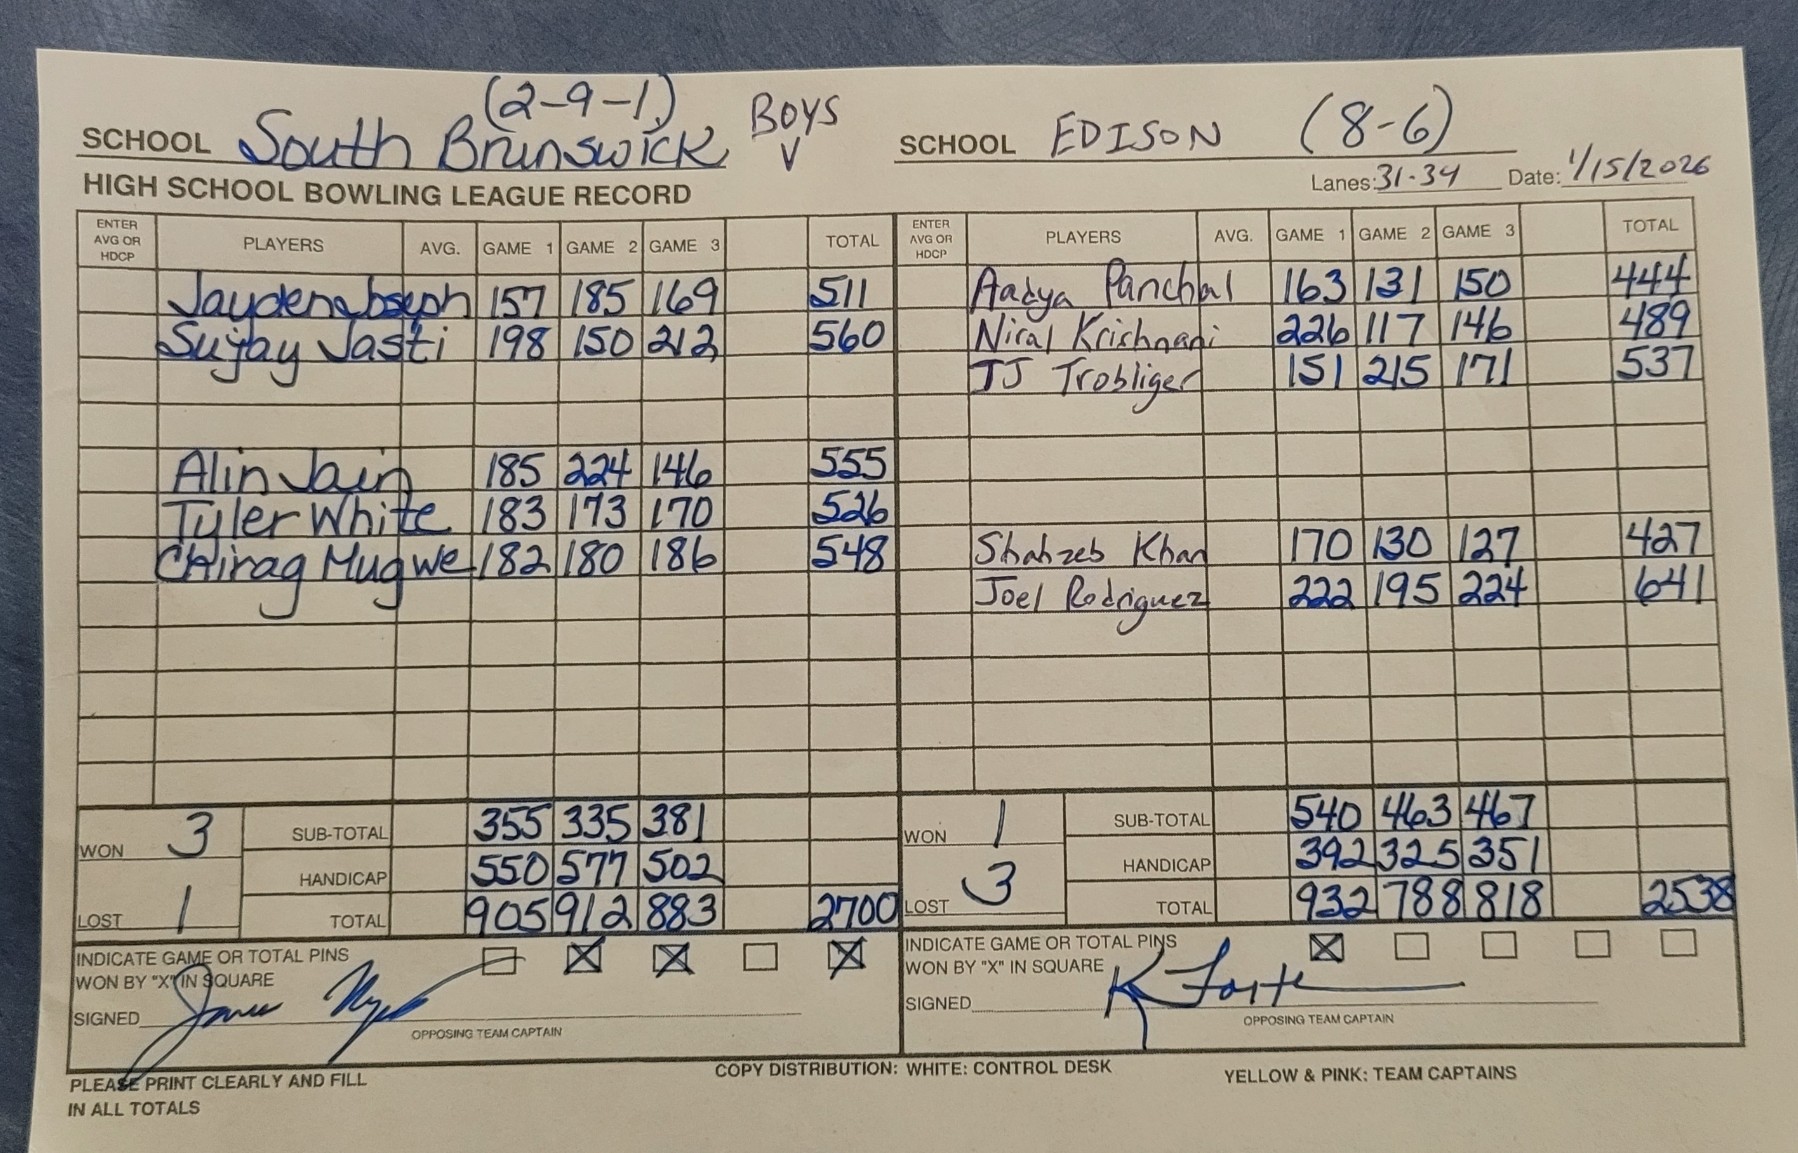 (2-9-1)
SCHOOL South Brunswick BOYS V
SCHOOL EDISON (8-6)
HIGH SCHOOL BOWLING LEAGUE RECORD
Lanes: 31-34 Date: 1/15/2026
ENTER AVG OR HDCP PLAYERS AVG. GAME 1 GAME 2 GAME 3 TOTAL
Jayden Joseph 157 185 169 511
Sujay Jasti 198 150 212 560
Alin Jain 185 224 146 555
Tyler White 183 173 170 526
Chirag Mugwe 182 180 186 548
WON 3 SUB-TOTAL 355 335 381
HANDICAP 550 577 502
LOST 1 TOTAL 905 912 883 2700
INDICATE GAME OR TOTAL PINS
WON BY "X" IN SQUARE
SIGNED
OPPOSING TEAM CAPTAIN
ENTER AVG OR HDCP PLAYERS AVG. GAME 1 GAME 2 GAME 3 TOTAL
Aadya Panchal 163 131 150 444
Niral Krishnani 226 117 146 489
JJ Trobliger 151 215 171 537
Shahzeb Khan 170 130 127 427
Joel Rodriguez 222 195 224 641
WON 1 SUB-TOTAL 540 463 467
HANDICAP 392 325 351
LOST 3 TOTAL 932 788 818 2538
INDICATE GAME OR TOTAL PINS
WON BY "X" IN SQUARE
SIGNED
OPPOSING TEAM CAPTAIN
PLEASE PRINT CLEARLY AND FILL
IN ALL TOTALS
COPY DISTRIBUTION: WHITE: CONTROL DESK
YELLOW & PINK: TEAM CAPTAINS